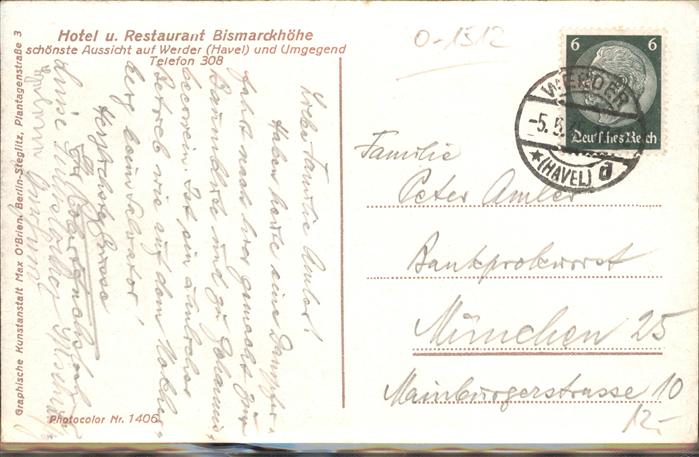 Hotel u. Restaurant Bismarckhöhe
schönste Aussicht auf Werder (Havel) und Umgegend
Telefon 308
0-1512
6 6
Deutsches Reich
WERDER
-5.5.
(HAVEL)
d
Liebe Familie Amler!
Haben heute eine Dampfer-
fahrt nach hier gemacht zur
Baumblüte und zu Johannis-
beerwein. Ist ein ähnlicher
Betrieb wie auf dem Nockher-
berg beim Salvator!
Herzlichste Grüsse
Familie
Peter Amler
Bankprokurist
München 25
Mainburgerstrasse 10
12.-
Photocolor Nr. 1406
Graphische Kunstanstalt Max O'Brien, Berlin-Steglitz, Plantagenstraße 3